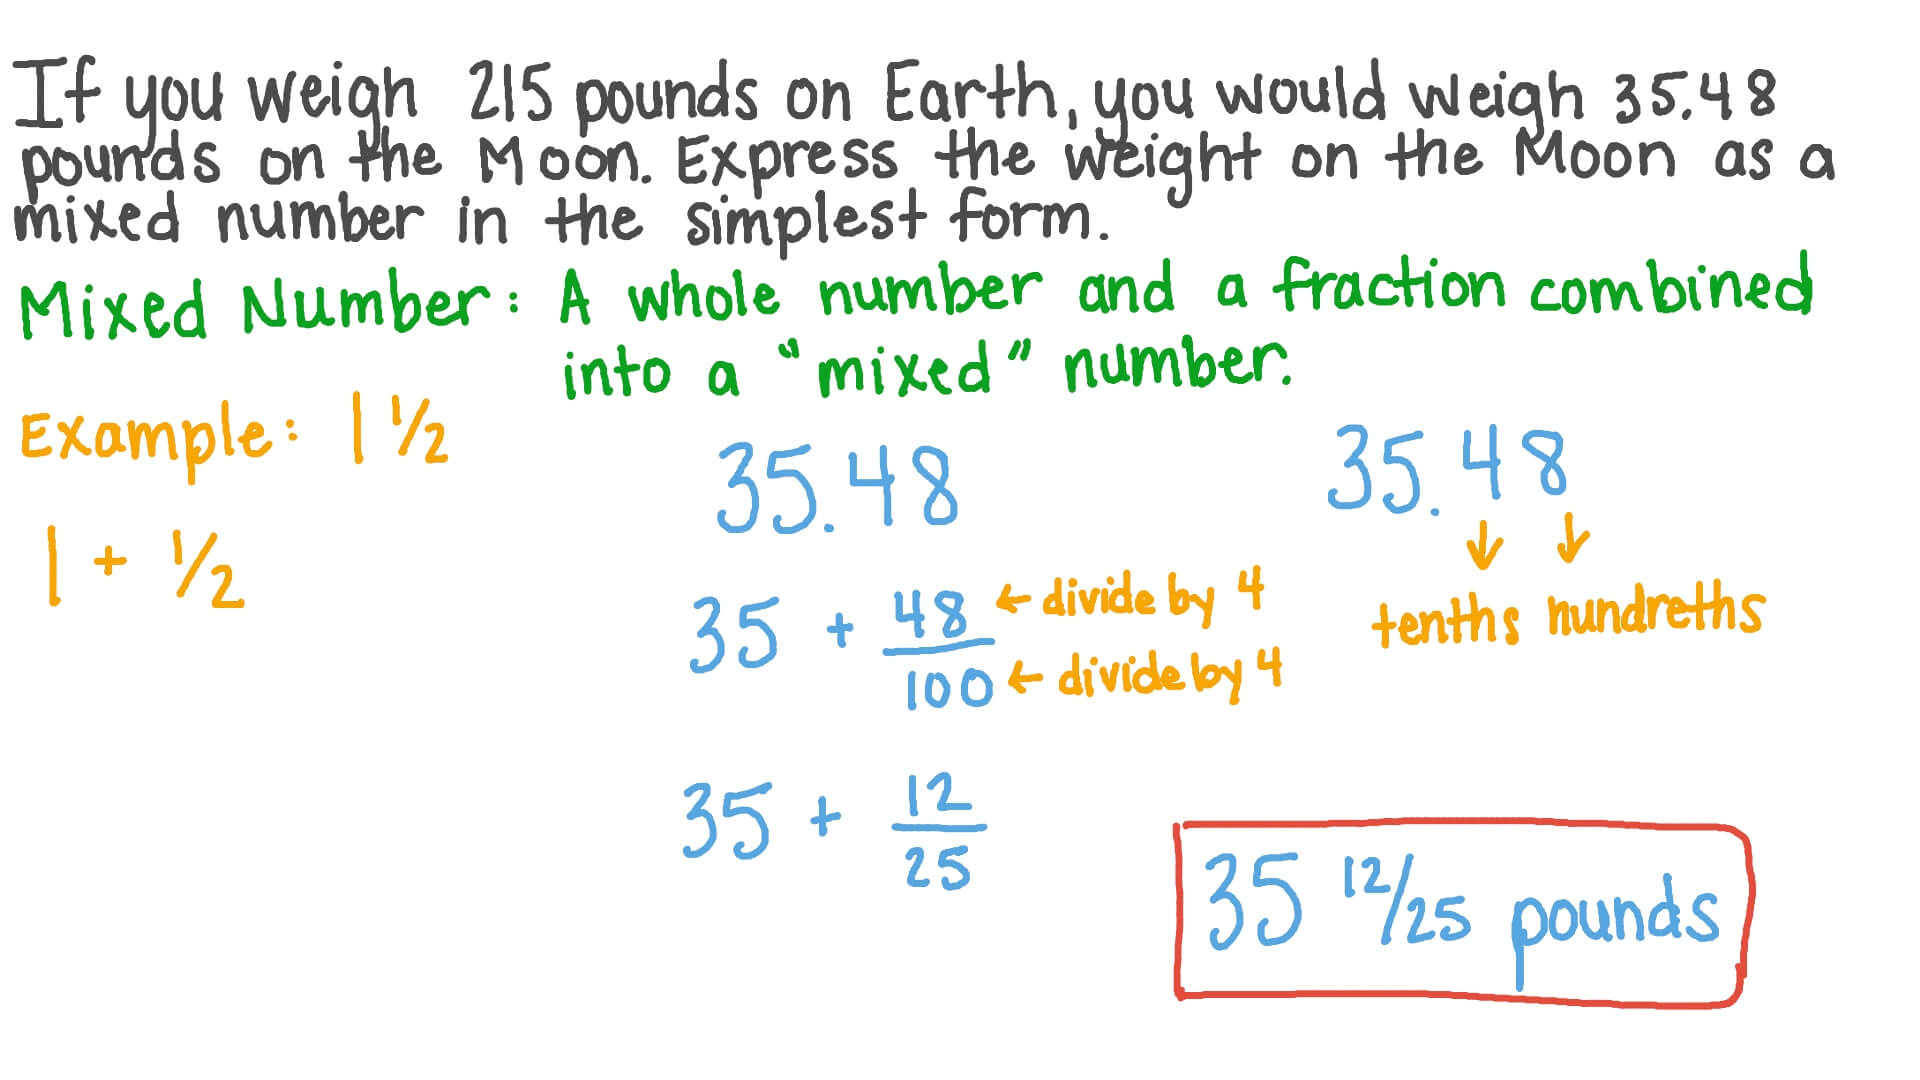 If you weigh 215 pounds on Earth, you would weigh 35.48
pounds on the Moon. Express the weight on the Moon as a
mixed number in the simplest form.
Mixed Number: A whole number and a fraction combined
into a "mixed" number.
Example: 1 1/2
1 + 1/2
35.48
35 + 48/100
← divide by 4
← divide by 4
35 + 12/25
35.48
↓ ↓
tenths hundreths
35 12/25 pounds